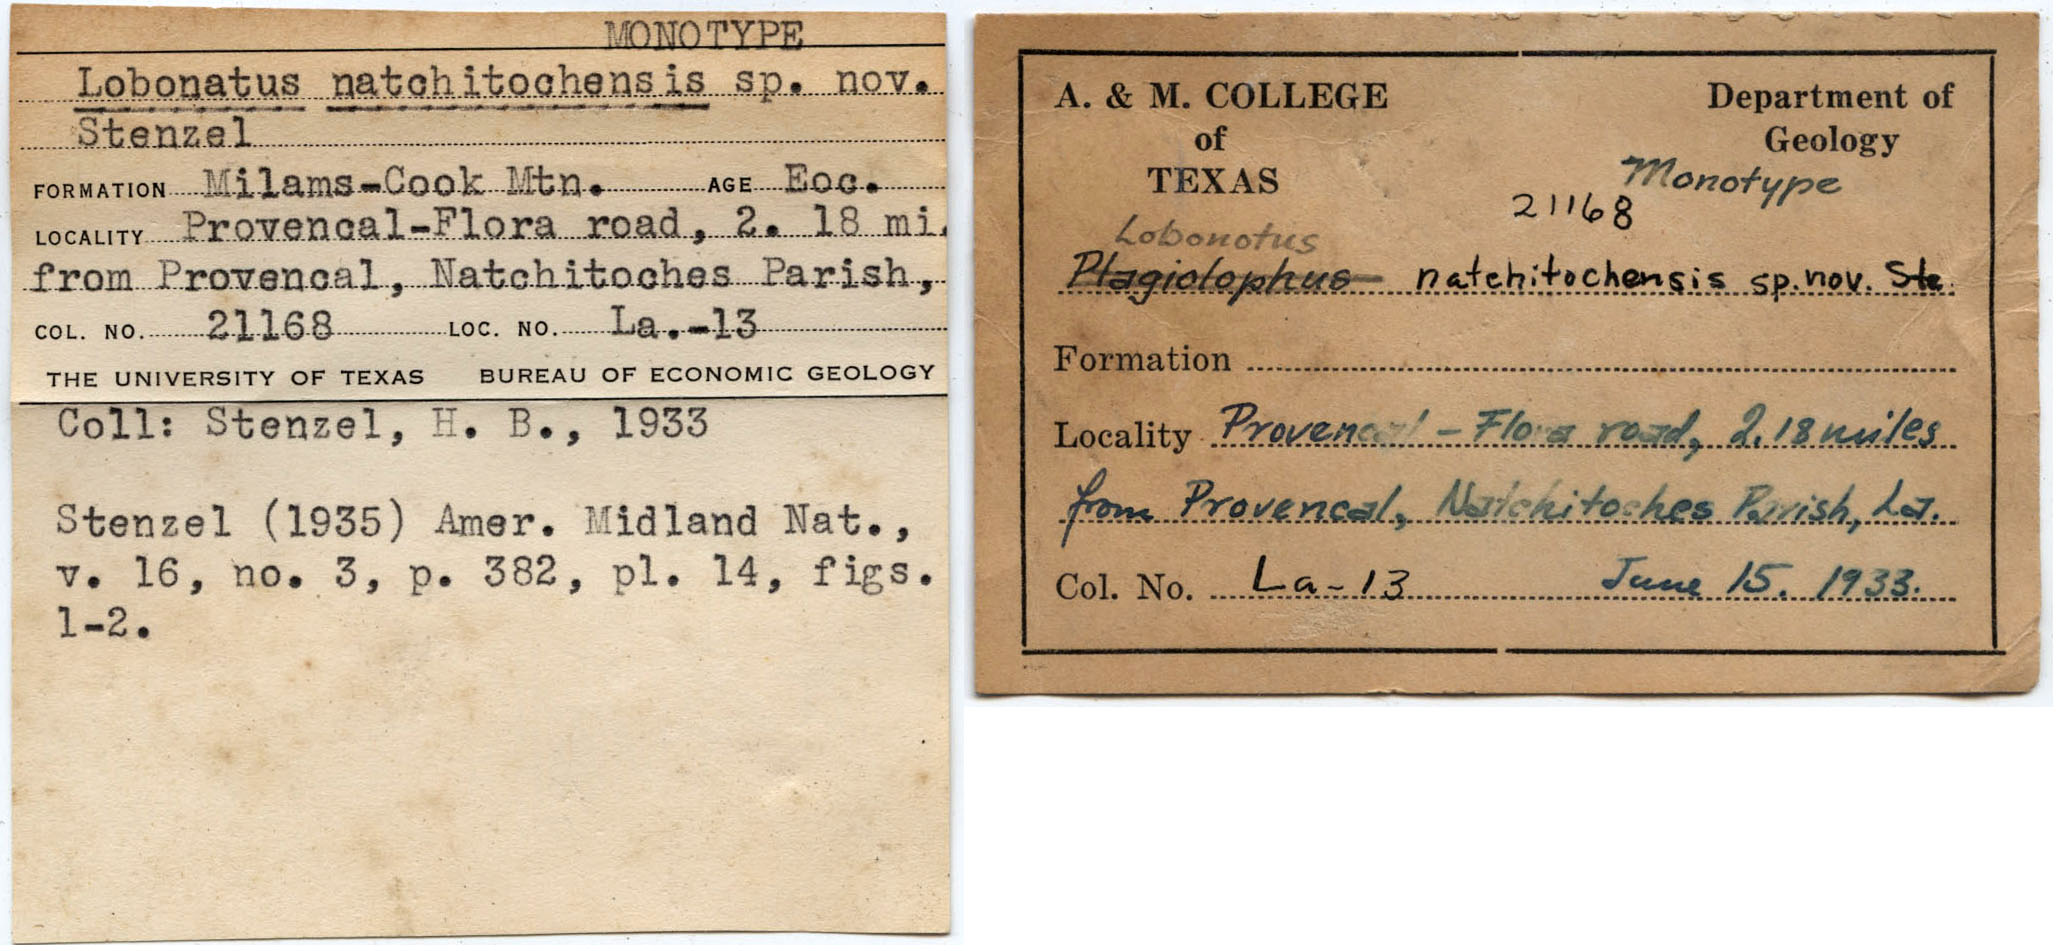 MONOTYPE
Lobonatus natchitochensis sp. nov.
Stenzel
FORMATION Milams-Cook Mtn. AGE Eoc.
LOCALITY Provencal-Flora road, 2. 18 mi.
from Provencal, Natchitoches Parish,
COL. NO. 21168 LOC. NO. La.-13
THE UNIVERSITY OF TEXAS BUREAU OF ECONOMIC GEOLOGY
Coll: Stenzel, H. B., 1933
Stenzel (1935) Amer. Midland Nat.,
v. 16, no. 3, p. 382, pl. 14, figs.
1-2.
A. & M. COLLEGE
of
TEXAS
Department of
Geology
Monotype
21168
Lobonotus
Plagiolophus natchitochensis sp.nov. Ste.
Formation
Locality Provencal - Flora road, 2.18 miles
from Provencal, Natchitoches Parish, La.
Col. No. La-13 June 15. 1933.